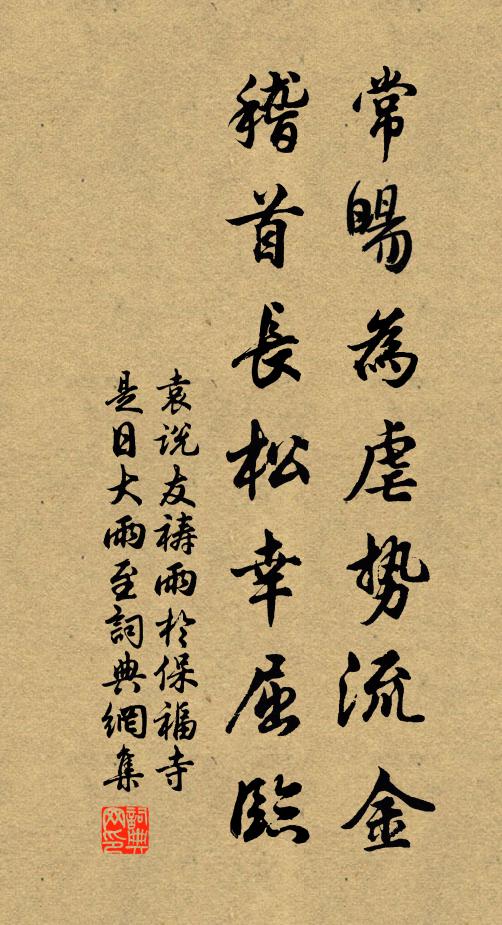 常暘為虐勢流金
稽首長松幸屈臨
袁説友禱雨於保福寺
是日大雨至詞典網集
詞典
网印